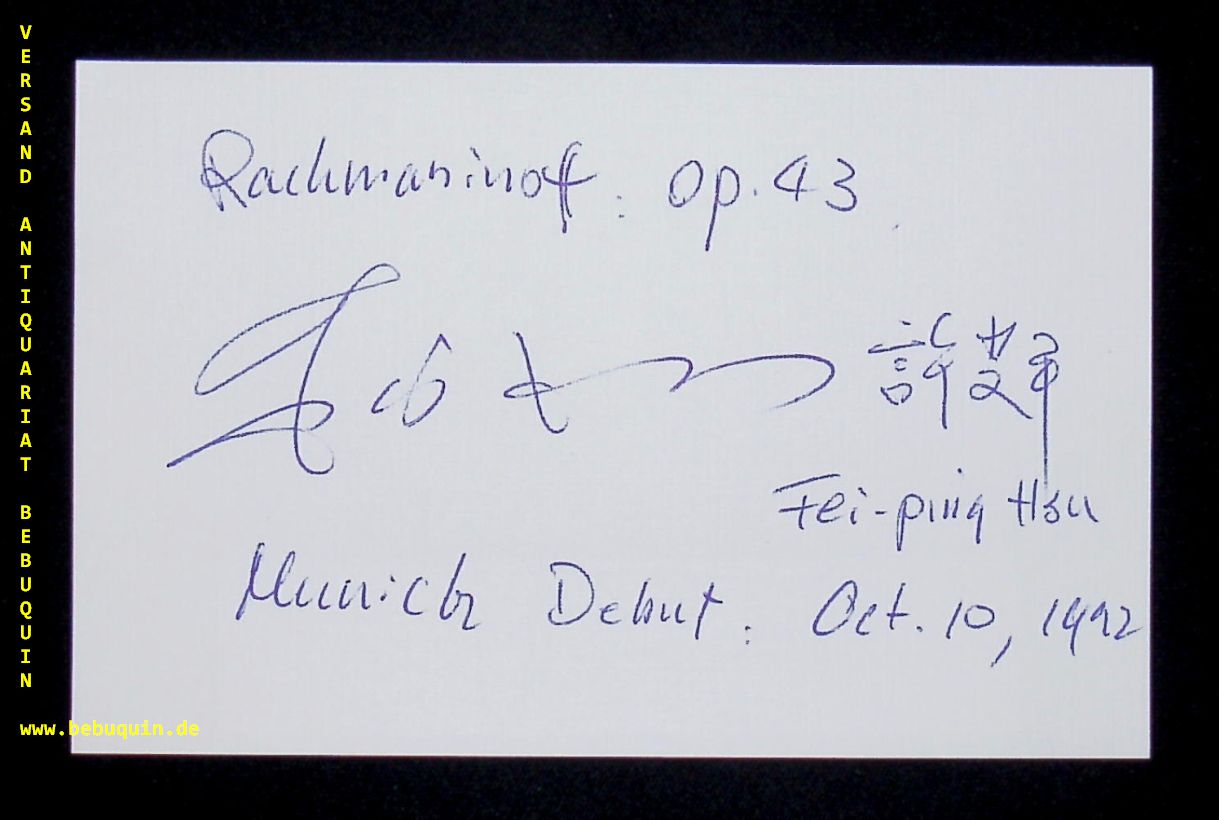 VERSAND ANTIQUARIAT BEBUQUIN
www.bebuquin.de
Rachmaninoff : Op. 43
許斐平
Fei-ping Hsu
Munich Debut : Oct. 10, 1992